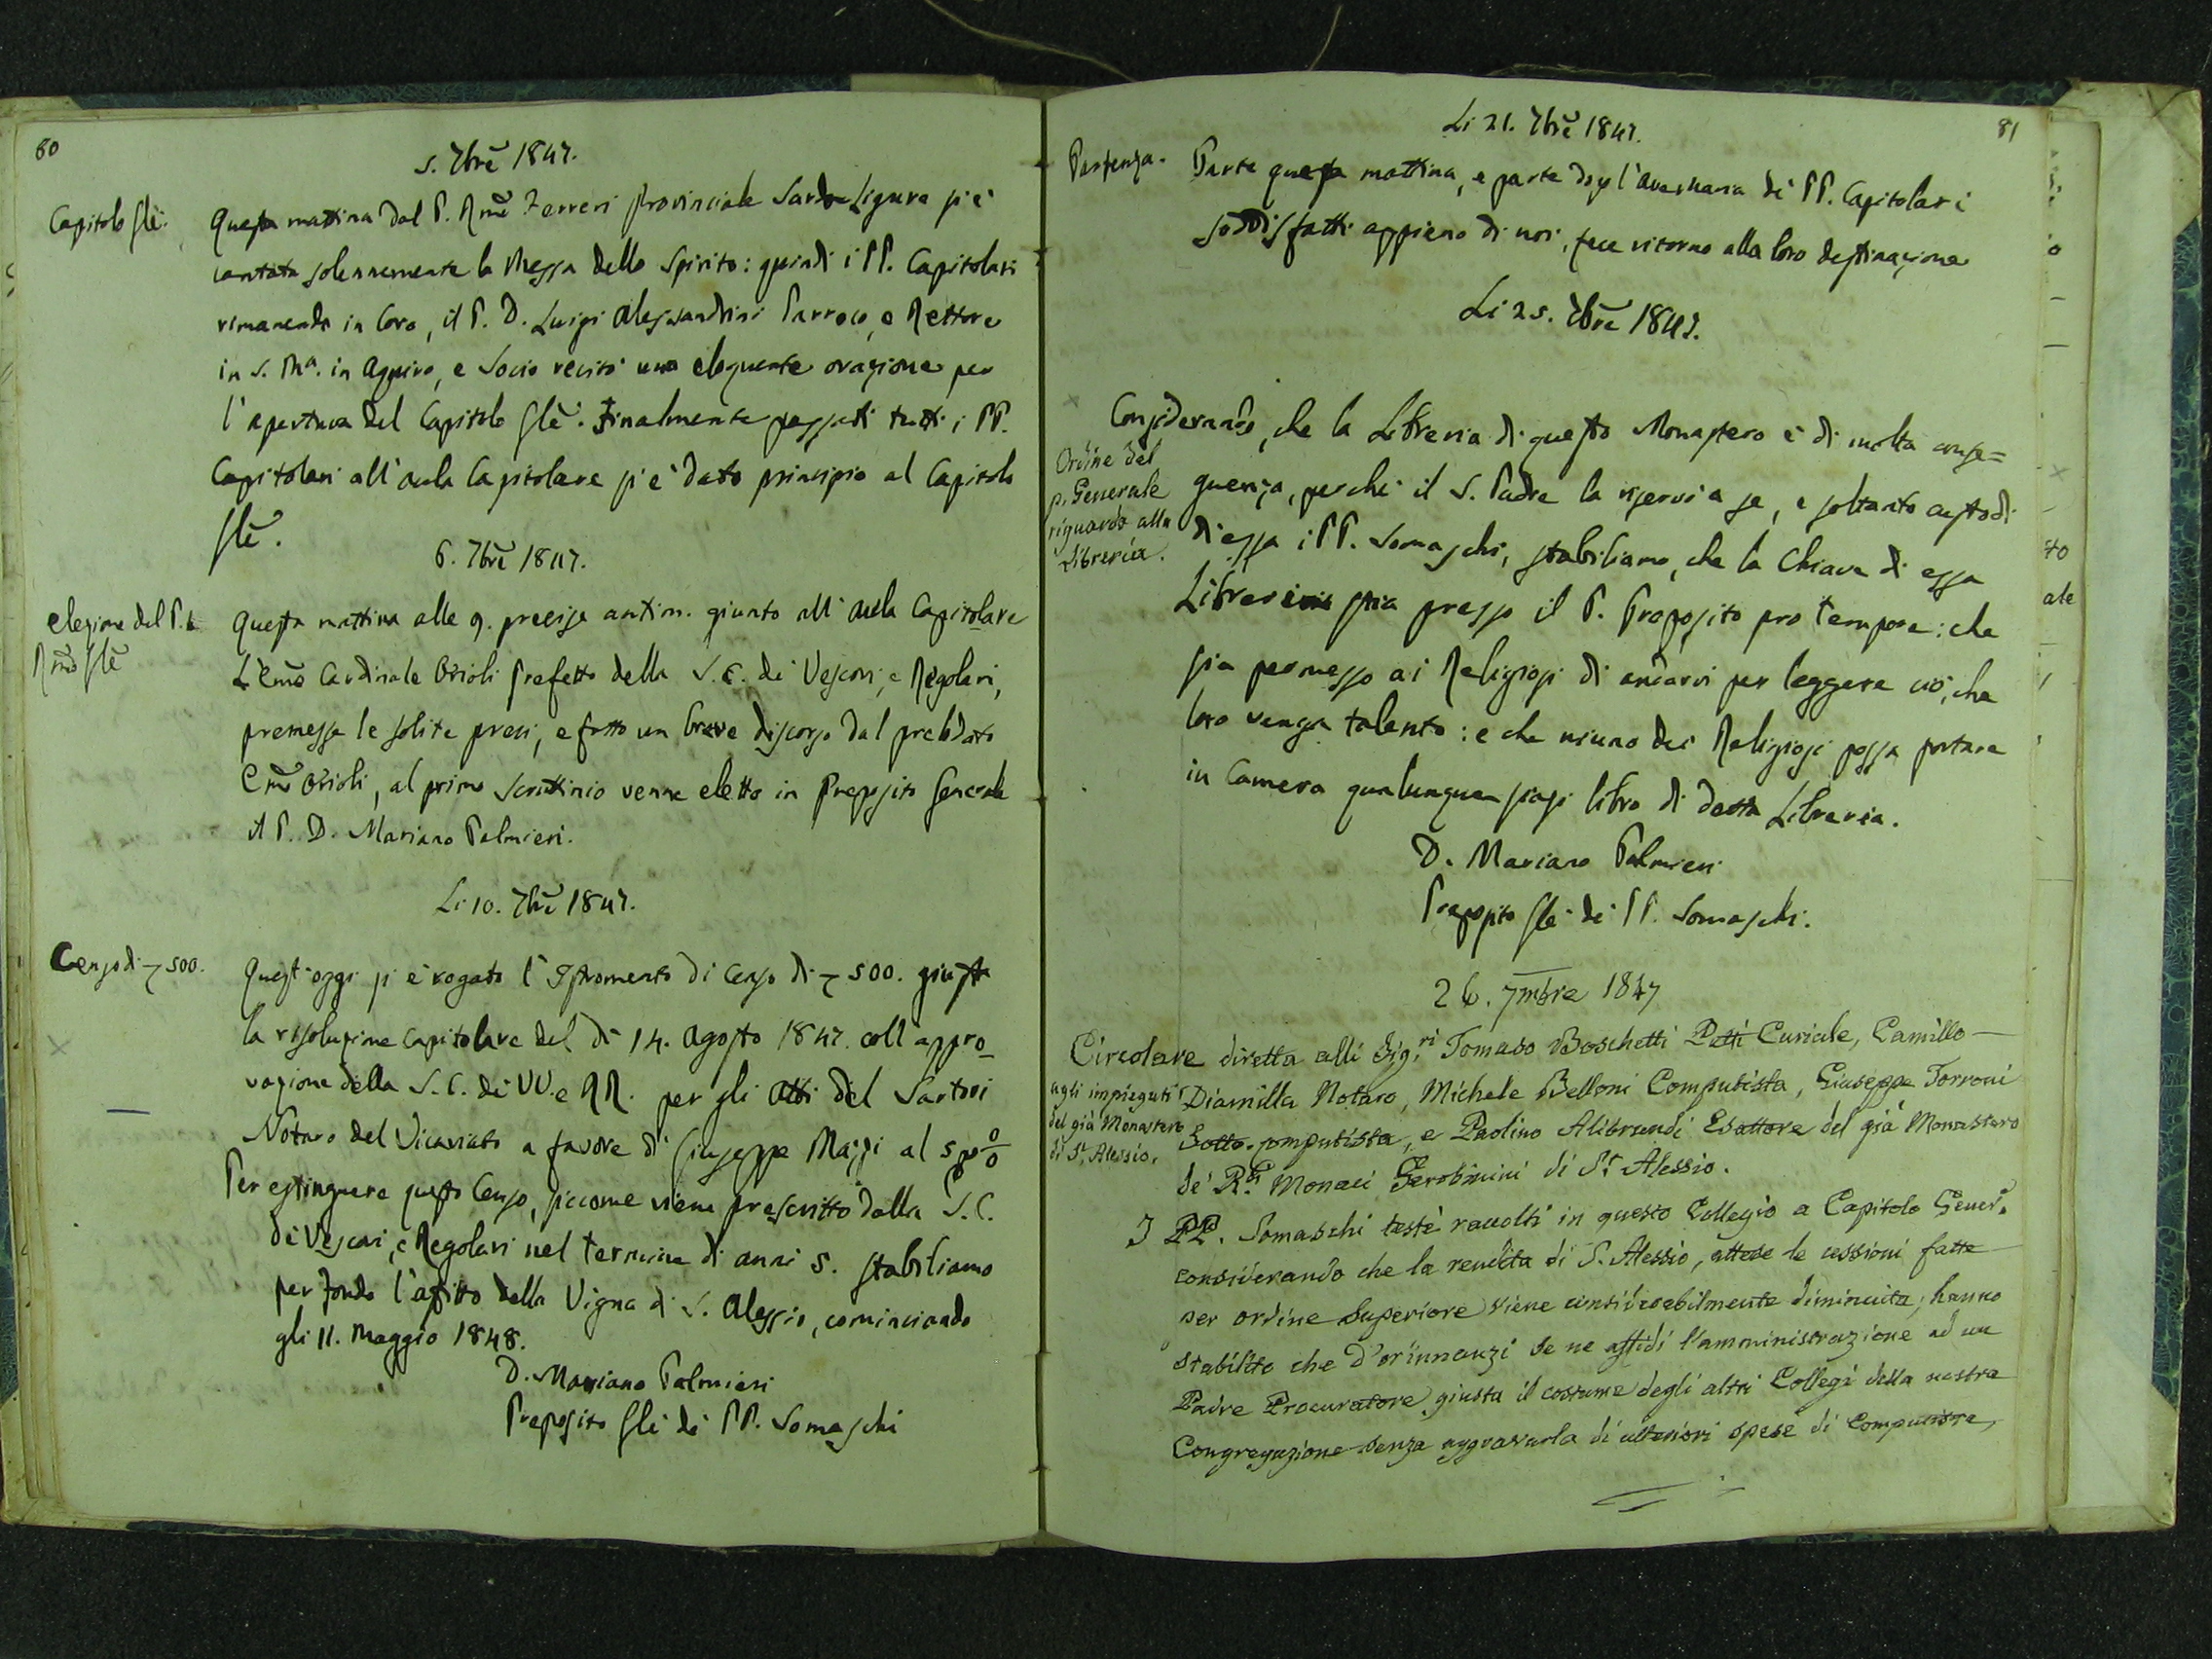 80
5. 7bre 1847.
Capitolo Gle.
Questa mattina dal P. Rmo Ferreri Provinciale Sardo Ligure si è
cantata solennemente la Messa dello Spirito: quindi i PP. Capitolari
rimanendo in Coro, il P. D. Luigi Alessandrini Parroco, e Rettore
in S. Ma. in Aquiro, e Socio recitò una eloquente orazione per
l'apertura del Capitolo Gle. Finalmente passati tutti i PP.
Capitolari all'aula Capitolare si è dato principio al Capitolo
Gle.
6. 7bre 1847.
Elezione del P.
Rmo Gle
Questa mattina alle 9. precise antim. giunto all'aula Capitolare
L'Emo Cardinale Orioli Prefetto della S. C. de' Vescovi, e Regolari,
premesse le solite preci, e fatto un breve discorso dal prelodato
Emo Orioli, al primo Scruttinio venne eletto in Preposito Generale
il P. D. Mariano Palmieri.
Li 10. 7bre 1847.
Censo di 500.
Quest'oggi si è rogato l'Istromento di Censo di 500. giusta
la risoluzione Capitolare del dì 14. Agosto 1847. coll'appro-
vazione della S. C. de' VV. e RR. per gli Atti del Sartori
Notaro del Vicariato a favore di Giuseppe Mazzi al 5 p%
Per estinguere questo Censo, siccome viene prescritto dalla S. C.
de' Vescovi, e Regolari nel termine di anni 5. stabiliamo
per fondo l'affitto della Vigna di S. Alessio, cominciando
gli 11. Maggio 1848.
D. Mariano Palmieri
Preposito Gle de' PP. Somaschi
81
Li 21. 7bre 1847.
Partenza.
Parte questa mattina, e parte dopo l'Avemaria de' PP. Capitolari
soddisfatti appieno di noi, fece ritorno alla loro destinazione
Li 25. 7bre 1847.
Ordine del
p. Generale
riguardo alla
Libreria.
Considerando, che la Libreria di questo Monastero è di molta conse=
guenza, perchè il S. Padre la riservò a se, e soltanto custodi
di essa i PP. Somaschi, stabiliamo, che la Chiave di essa
Libreria stia presso il P. Preposito pro tempore: che
sia permesso ai Religiosi di andarvi per leggere ciò, che
loro venga talento: e che niuno dei Religiosi possa portare
in Camera qualunque siasi libro di detta Libreria.
D. Mariano Palmieri
Preposito Gle de' PP. Somaschi.
26. 7mbre 1847
Circolare diretta alli Sig.ri Tomaso Boschetti Patti Curiale, Camillo
agli impiegati
del già Monastero
di S. Alessio.
Diamilla Notaro, Michele Belloni Computista, Giuseppe Torroni
Sotto-computista, e Paolino Alibrandi Esattore del già Monastero
de' R.di Monaci Gerolimini di S.t Alessio.
I PP. Somaschi testè raccolti in questo Collegio a Capitolo Gener.
considerando che la rendita di S. Alessio, attese le cessioni fatte
per ordine Superiore viene considerabilmente diminuita, hanno
stabilito che d'orinnanzi se ne affidi l'amministrazione ad un
Padre Procuratore giusta il costume degli altri Collegi della nostra
Congregazione senza aggravarla di ulteriori spese di Computista,